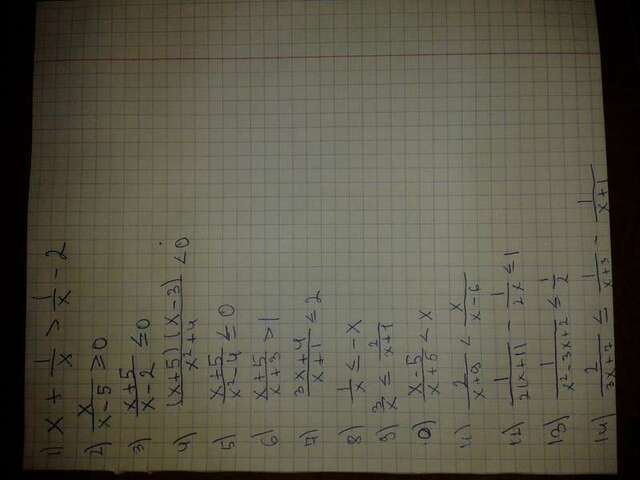 1) x + 1/x > 1/x - 2
2) x/(x-5) ≥ 0
3) (x+5)/(x-2) ≤ 0
4) (x+5)(x-3)/(x²+4) < 0
5) (x+5)/(x²-4) ≤ 0
6) (x+5)/(x+3) > 1
7) (3x+4)/(x+1) ≤ 2
8) 1/x ≤ -x
9) 3/x ≤ 2/(x+1)
10) (x-5)/(x+5) < x
11) 2/(x+9) < x/(x-6)
12) 1/(2(x+1)) - 1/(2x) ≤ 1
13) 1/(x²-3x+2) ≤ 1/2
14) 2/(3x+7) ≤ 1/(x+3) - 1/(x+1)